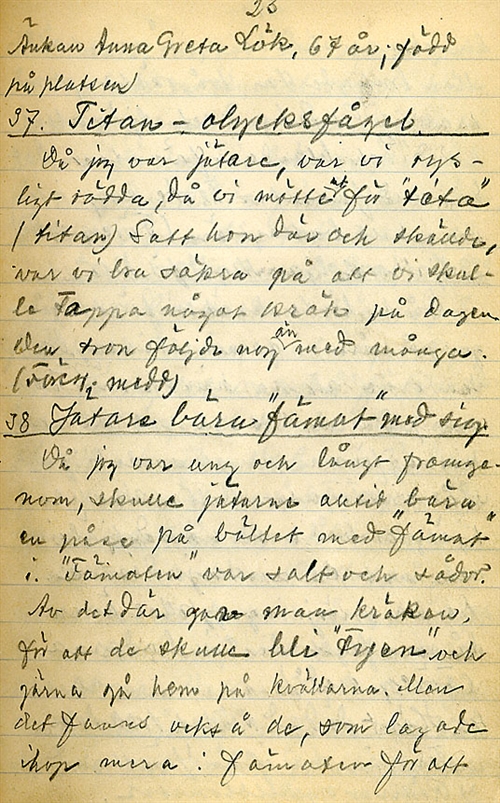 25
Änkan Anna Greta Lök, 67 år, född
på platsen
37. Titan - olycksfågel.
Då jag var jätare, var vi rys-
ligt rädda, då vi mötte att för "töta"
(titan) Satt hon där och skällde,
var vi bra säkra på att vi skul-
le tappa något kräk på dagen
Den tron följde nog än med många.
(Förtj. medd)
38 Jätare bära "fämat" med sig.
Då jag var ung och långt framge-
nom, skulle jätarne altid bära
en påse på bältet med "fämat"
i. "Fämaten" var salt och sådor.
Av det där gav man kräken,
för att de skulle bli "tyen" och
järna gå hem på kvällarna. Men
det fanns också de, som lagade
ihop mera i fämaten för att